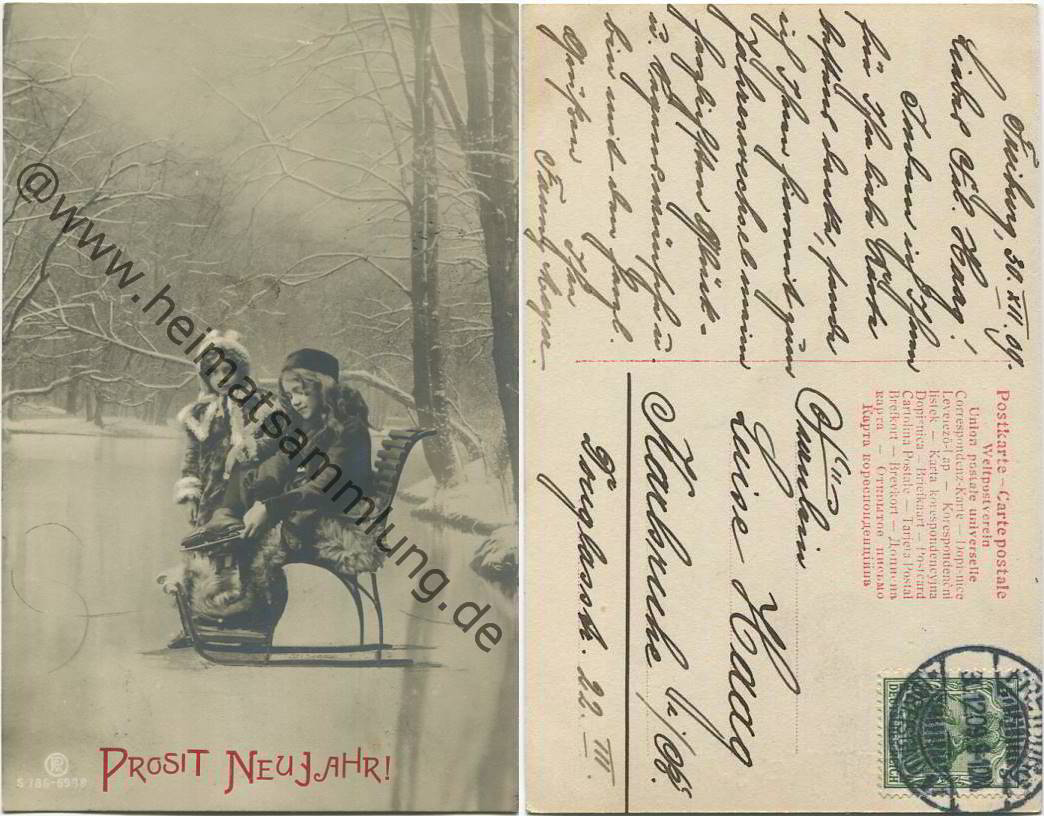 @www.heimatsammlung.de
PROSIT NEUJAHR!
Freiburg, 30. XII. 09.
Liebes Frl. Haag!
Indem ich Ihnen
für Ihre liebe Karte
bestens danke, sende
ich Ihnen hiermit zum
Jahreswechsel meine
herzlichsten Glück-
u. Segenswünsche u.
bin mit den herzl.
Grüßen Ihr
Postkarte – Carte postale
Weltpostverein
Union postale universelle
Correspondenz-Karte – Dopisnice
Levelező-Lap – Korespondencni
listek – Karta korespondencyjna
Dopisnica – Briefkaart – Postcard
Cartolina Postale – Tarjeta Postal
Brefkort – Brevkort – Дописна
карта – Открытое письмо
Карта кореспонденціина
Fräulein
Luise Haag
Karlsruhe i/B.
Douglasstr. 22. III.
31.12.09
DEUTSCHES REICH